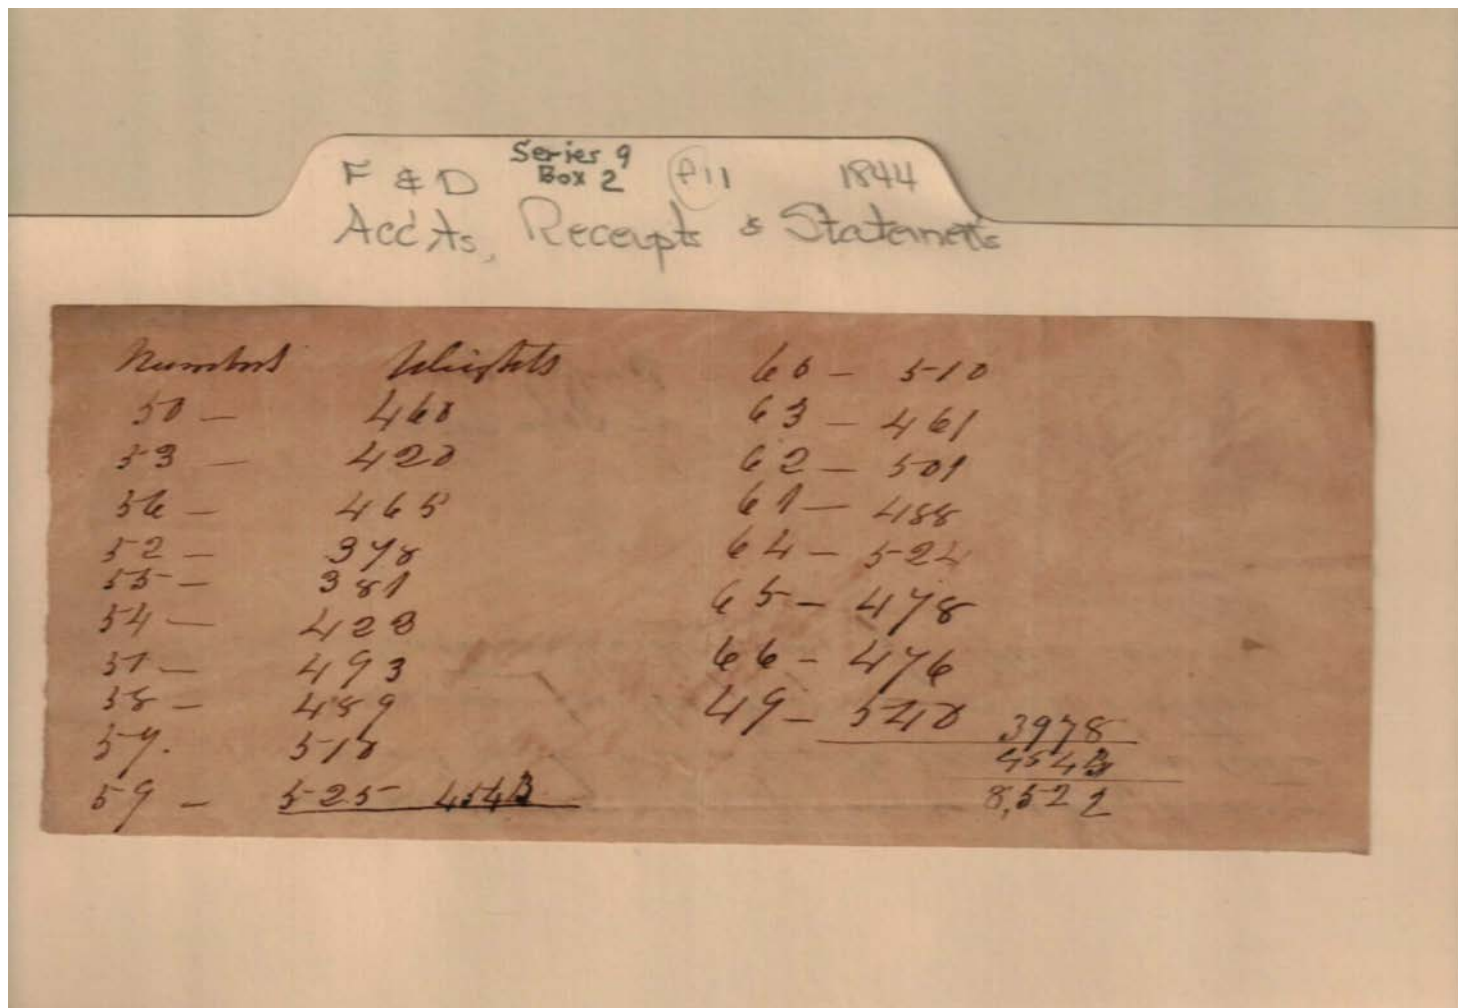 F & D Series 9 Box 2 f11 1844
Acc'ts, Receipts & Statements
Numbers Weights
50 — 460
53 — 420
56 — 465
52 — 378
55 — 381
54 — 423
51 — 493
58 — 489
57. 510
59 — 525 4544
60 — 510
63 — 461
62 — 501
61 — 488
64 — 524
65 — 478
66 — 476
49 — 540 3978
4544
8,522